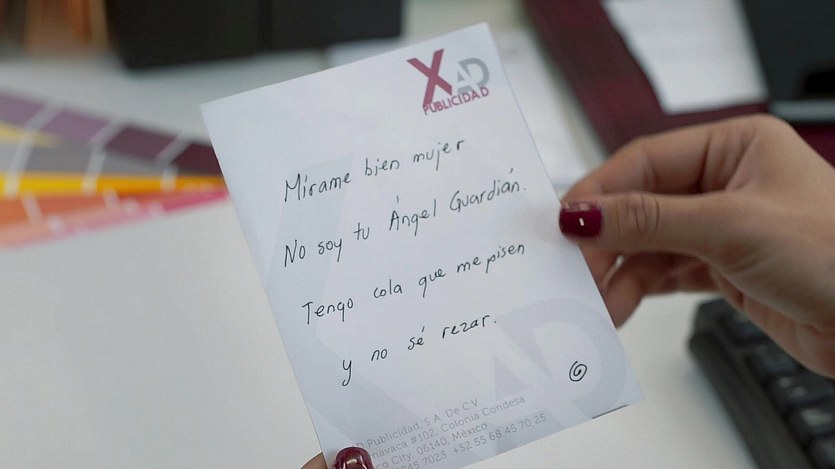 XAD
PUBLICIDAD
Mírame bien mujer
No soy tu Ángel Guardián.
Tengo cola que me pisen
y no sé rezar.
Publicidad, S.A. De C.V
#102, Colonia Condesa
City, 06140, México
7023 +52 55 68 45 70 25